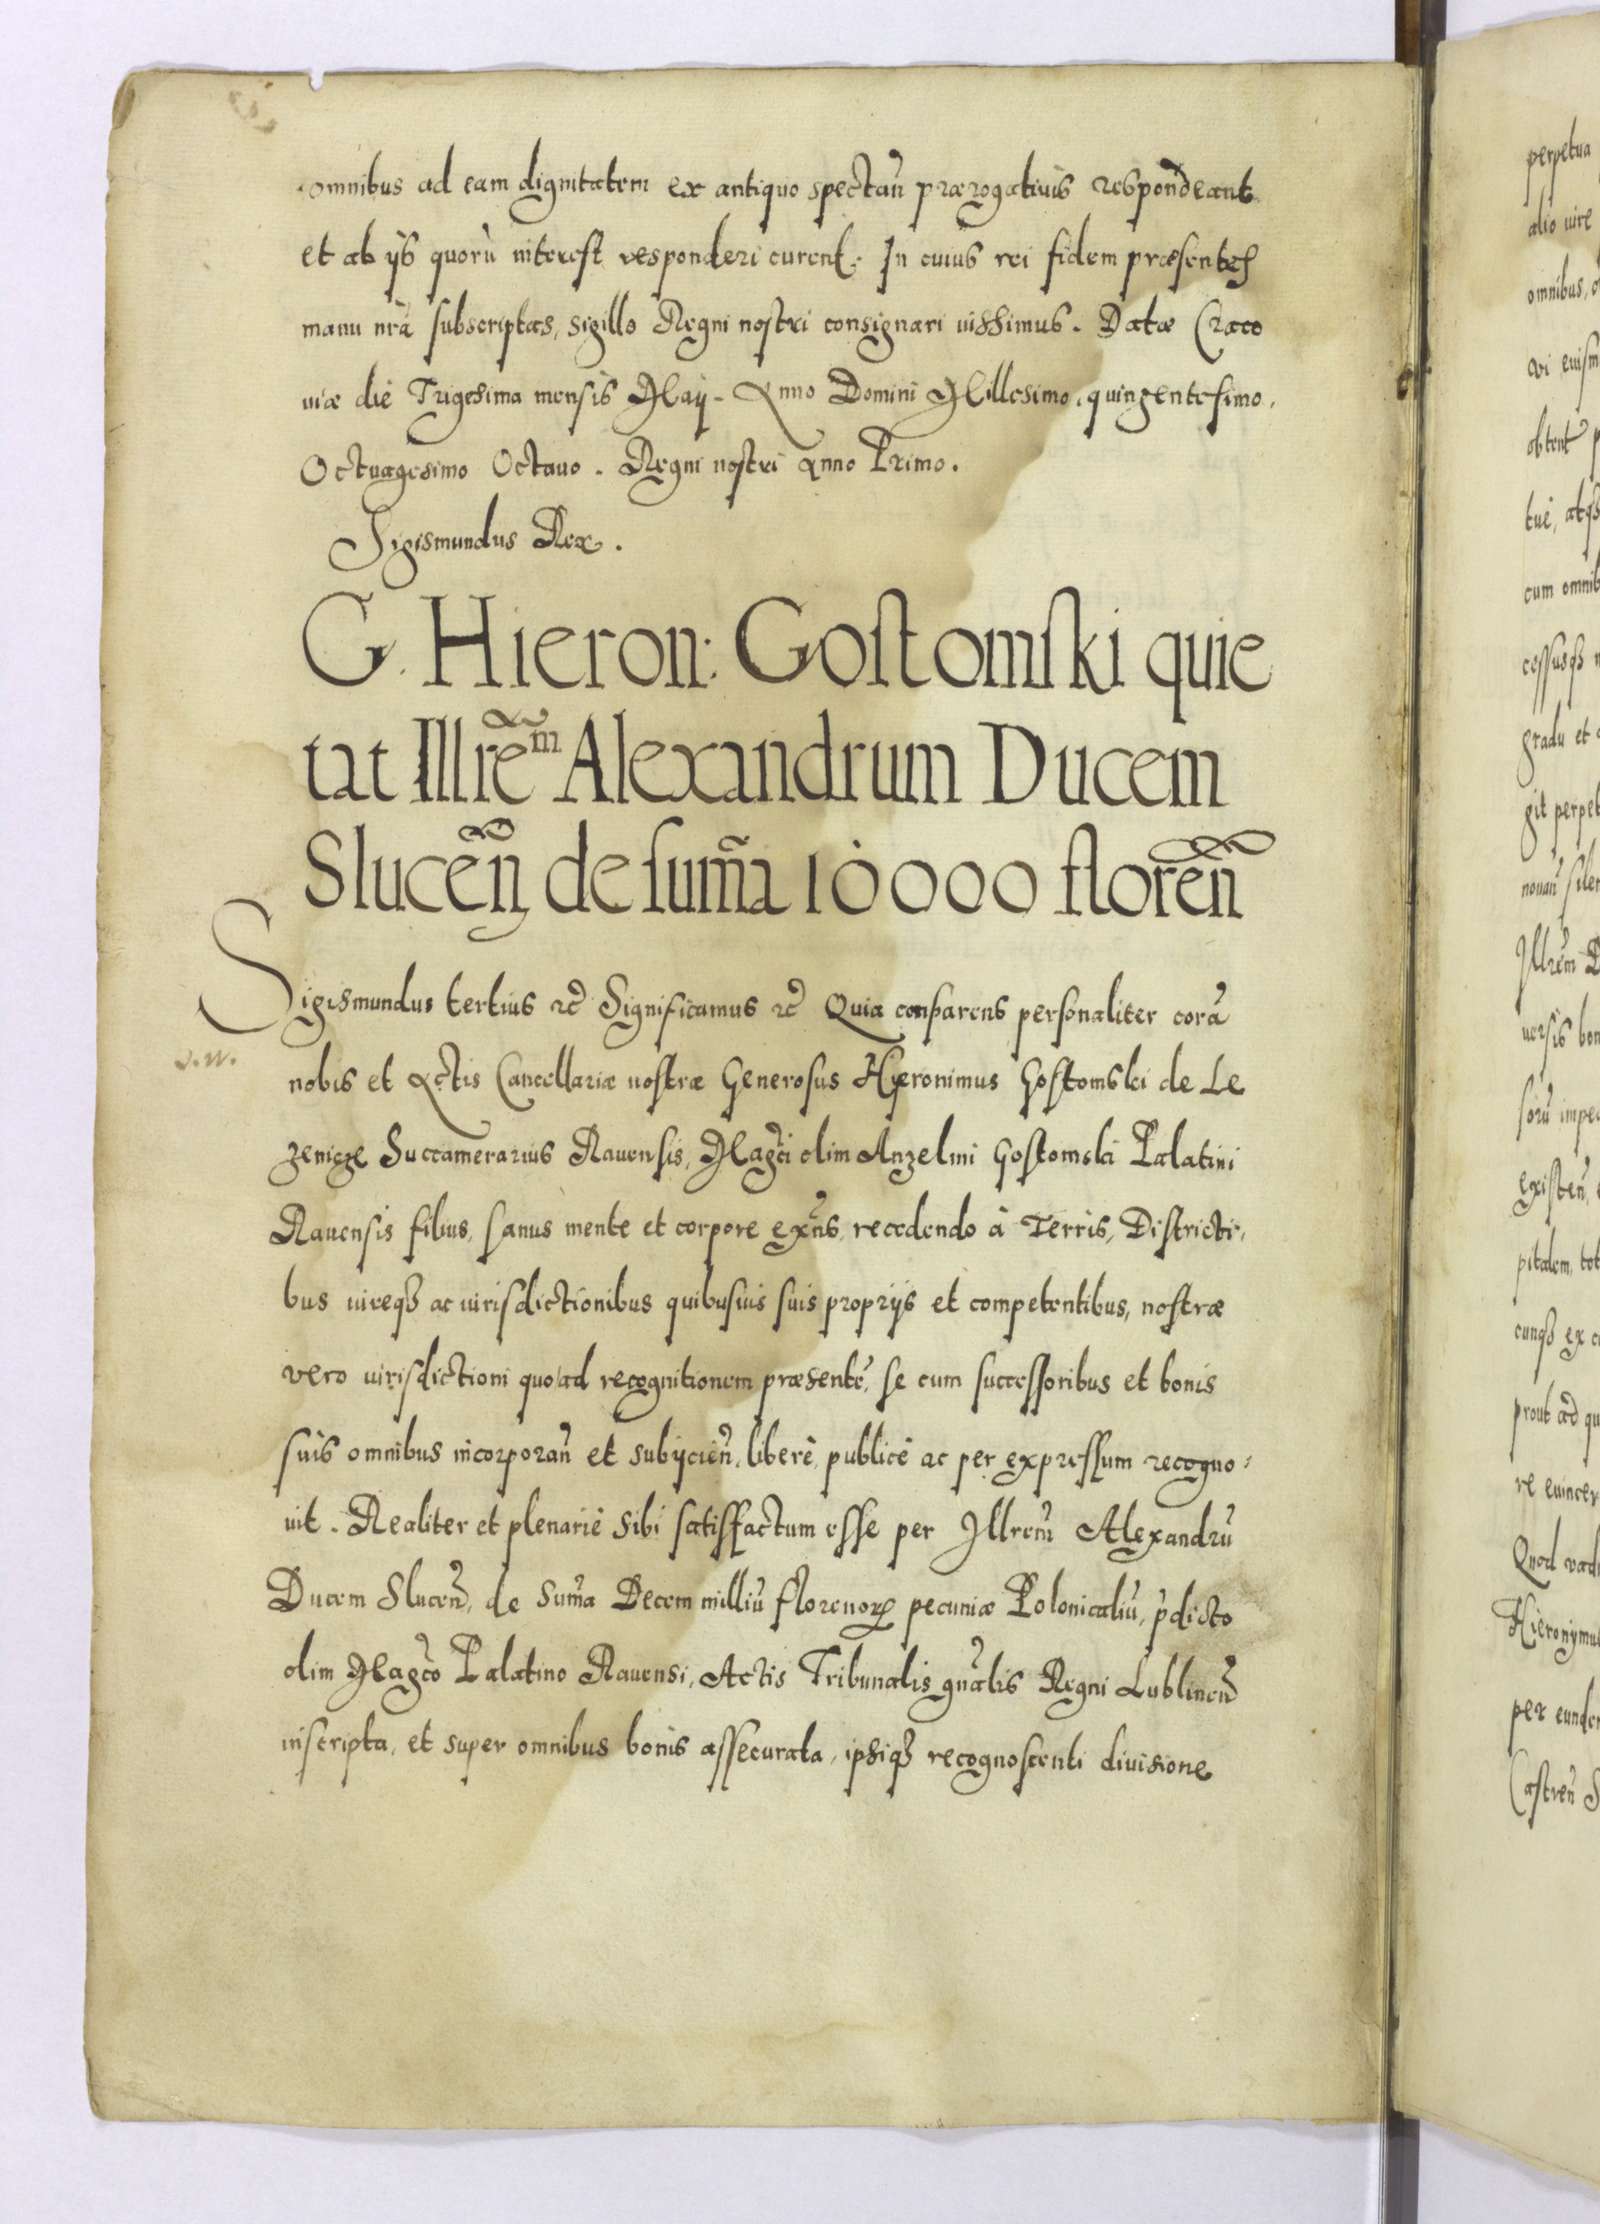 omnibus ad eam dignitatem ex antiquo spectañ prærogatiuis respondeant
et ab ijs quorũ interest responderi curent. In cuius rei fidem præsentes
manu nrã subscriptas, sigillo Regni nostri consignari iussimus. Datæ Craco
uiæ die Trigesima mensis Maij. Anno Domini Millesimo, quingentesimo,
Octuagesimo Octauo. Regni nostri Anno Primo.
Sigismundus Rex.
G. Hieron: Gostomski quie
tat Illrem̃ Alexandrum Ducem
Sluceñ de sum̃a 10000 floreñ
Sigismundus tertius &c Significamus &c Quia comparens personaliter corã
nobis et Actis Cancellariæ nostræ Generosus Hieronimus Gostomski de Le
zenicze Succamerarius Rauensis, Magci olim Anzelmi Gostomski Palatini
Rauensis filius, sanus mente et corpore exñs, recedendo à Terris, Districti,
bus iureqȝ ac iurisdictionibus quibusuis suis proprijs et competentibus, nostræ
vero iurisdictioni quoad recognitionem præsentẽ, se cum successoribus et bonis
suis omnibus incorporañ et subijcieñ, liberè, publicè ac per expressum recogno
uit. Realiter et plenariè sibi satisfactum esse per Illrem̃ Alexandrũ
Ducem Sluceñ, de sum̃a Decem milliũ florenorꝝ pecuniæ Polonicaliũ, p̃dicto
olim Magc̃o Palatino Rauensi, Actis Tribunalis gnãlis Regni Lublineñ
inscripta, et super omnibus bonis assecurata, ipsiqȝ recognoscenti diuisione
perpetua
alio iure
omnibus,
obtent
tuẽ, atqȝ
cum omnib
cessusqȝ
gradu et
git perpet
nouañ sile
Illrem̃
uersis bon
soru impe
existeñ,
pitalem, tot
cunqȝ ex
prout ad qu
re euincer
Quod vad
Hieronymu
per eunde
Castreñ S